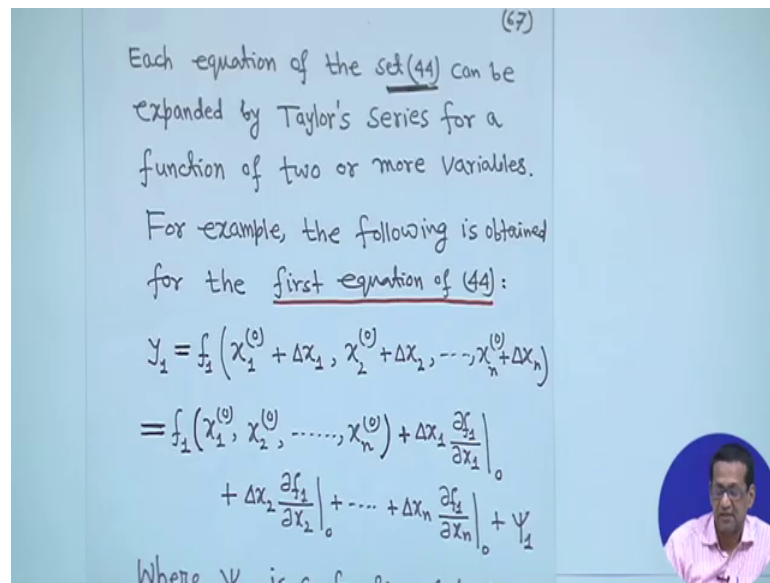 (67)
Each equation of the set (44) can be
expanded by Taylor's series for a
function of two or more variables.
For example, the following is obtained
for the first equation of (44):
y₁ = f₁(x₁⁽⁰⁾ + Δx₁, x₂⁽⁰⁾ + Δx₂, ----, xₙ⁽⁰⁾ + Δxₙ)
= f₁(x₁⁽⁰⁾, x₂⁽⁰⁾, ......, xₙ⁽⁰⁾) + Δx₁ ∂f₁/∂x₁|₀
+ Δx₂ ∂f₁/∂x₂|₀ + ---- + Δxₙ ∂f₁/∂xₙ|₀ + Ψ₁
Where Ψ is a